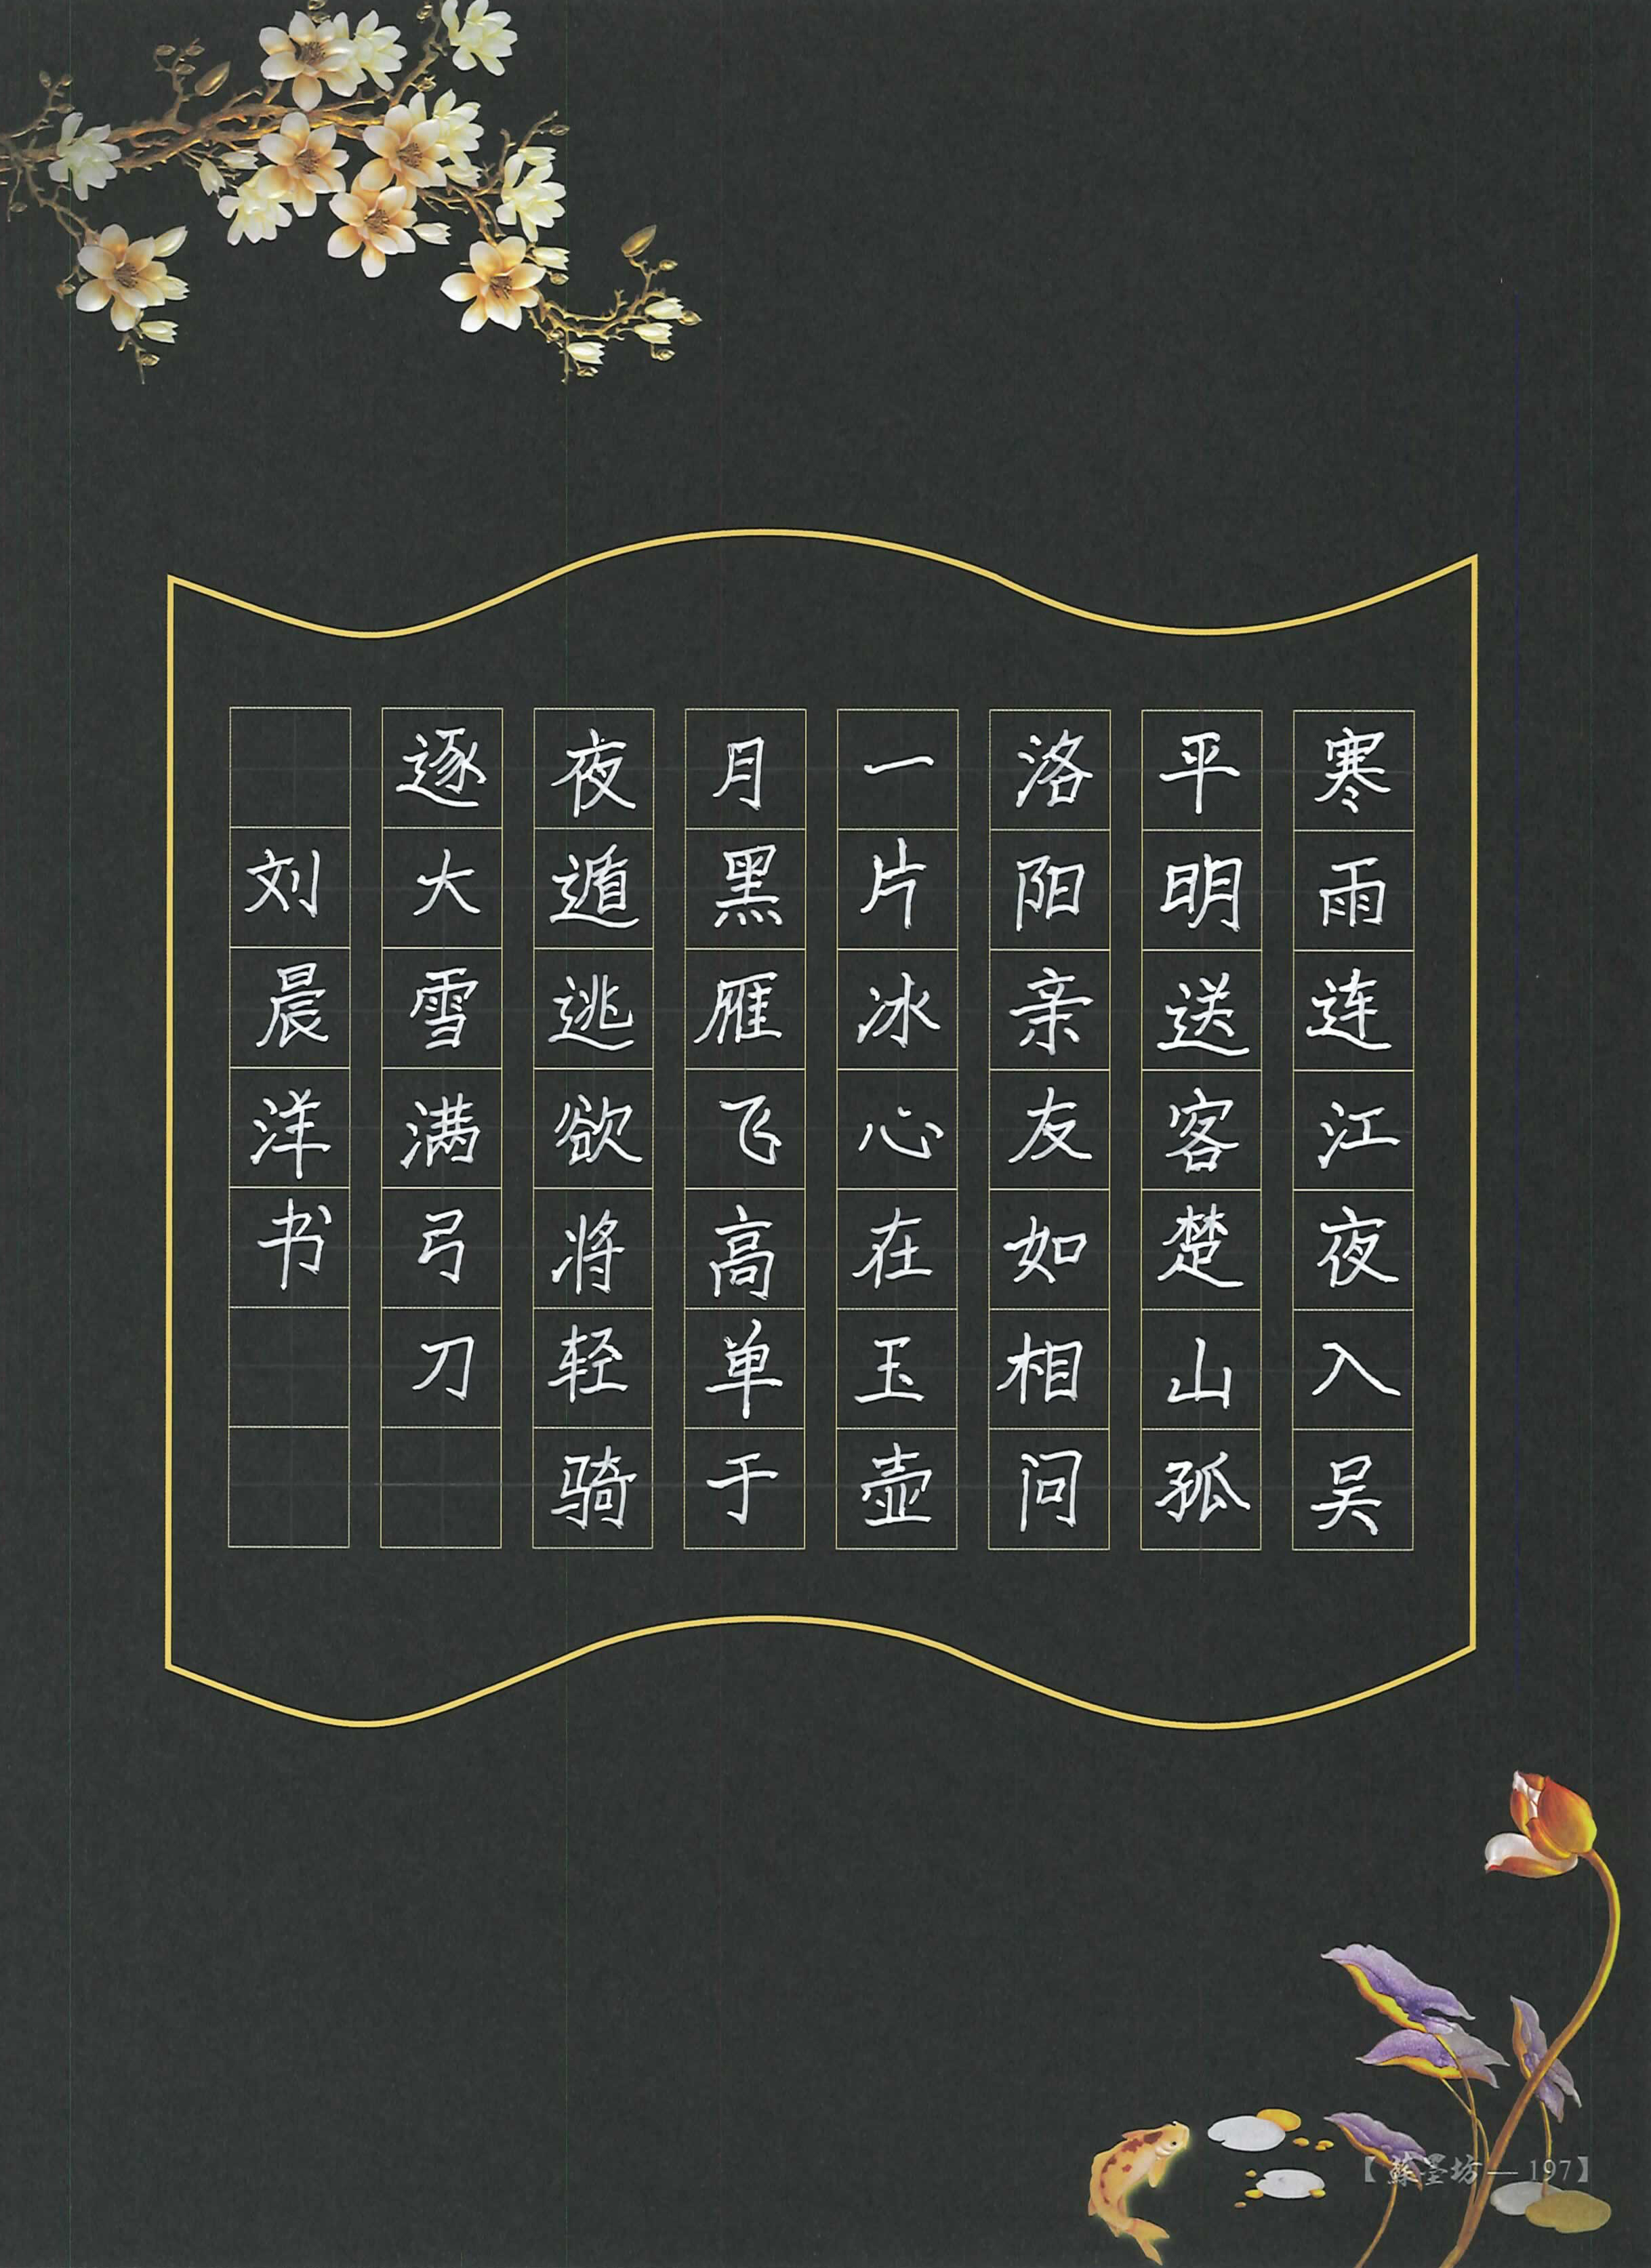 寒雨连江夜入吴
平明送客楚山孤
洛阳亲友如相问
一片冰心在玉壶
月黑雁飞高单于
夜遁逃欲将轻骑
逐大雪满弓刀
刘晨洋书
【蘇墨坊—197】